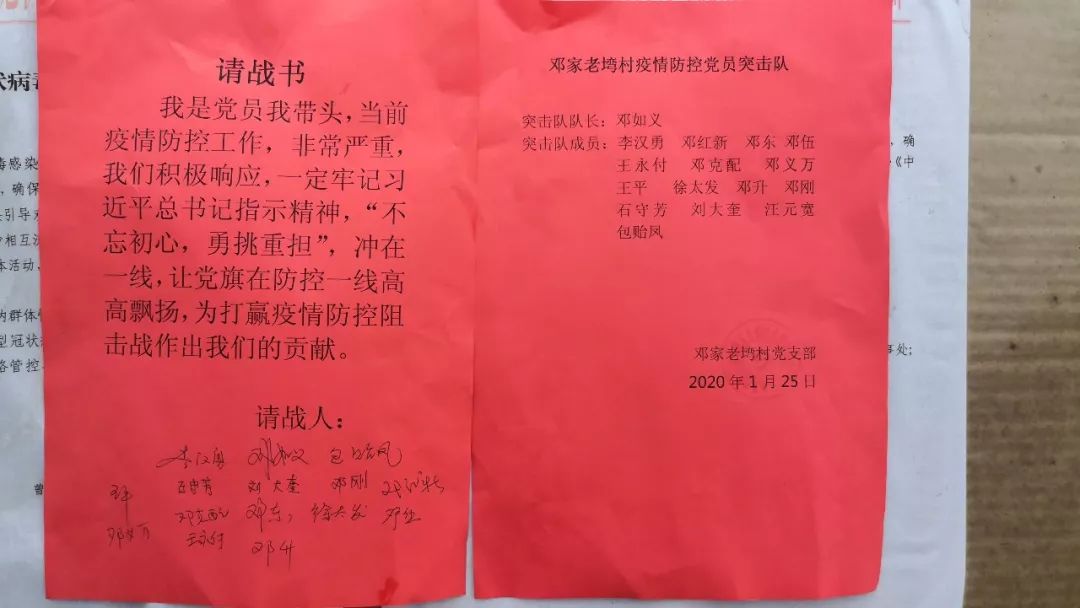 请战书
我是党员我带头，当前
疫情防控工作，非常严重，
我们积极响应，一定牢记习
近平总书记指示精神，“不
忘初心，勇挑重担”，冲在
一线，让党旗在防控一线高
高飘扬，为打赢疫情防控阻
击战作出我们的贡献。
请战人：
李汉勇 邓如义 包贻凤
石守芳 刘大奎 邓刚
王平 邓克配 邓东 徐太发 邓伍
邓义万 王永付 邓升
邓家老塆村疫情防控党员突击队
突击队队长：邓如义
突击队成员：李汉勇 邓红新 邓东 邓伍
王永付 邓克配 邓义万
王平 徐太发 邓升 邓刚
石守芳 刘大奎 汪元宽
包贻凤
邓家老塆村党支部
2020年1月25日
状病毒
毒感染
，确保
引导
相互
本活动、
内群体
型冠状
格管控
确
《中
事处;